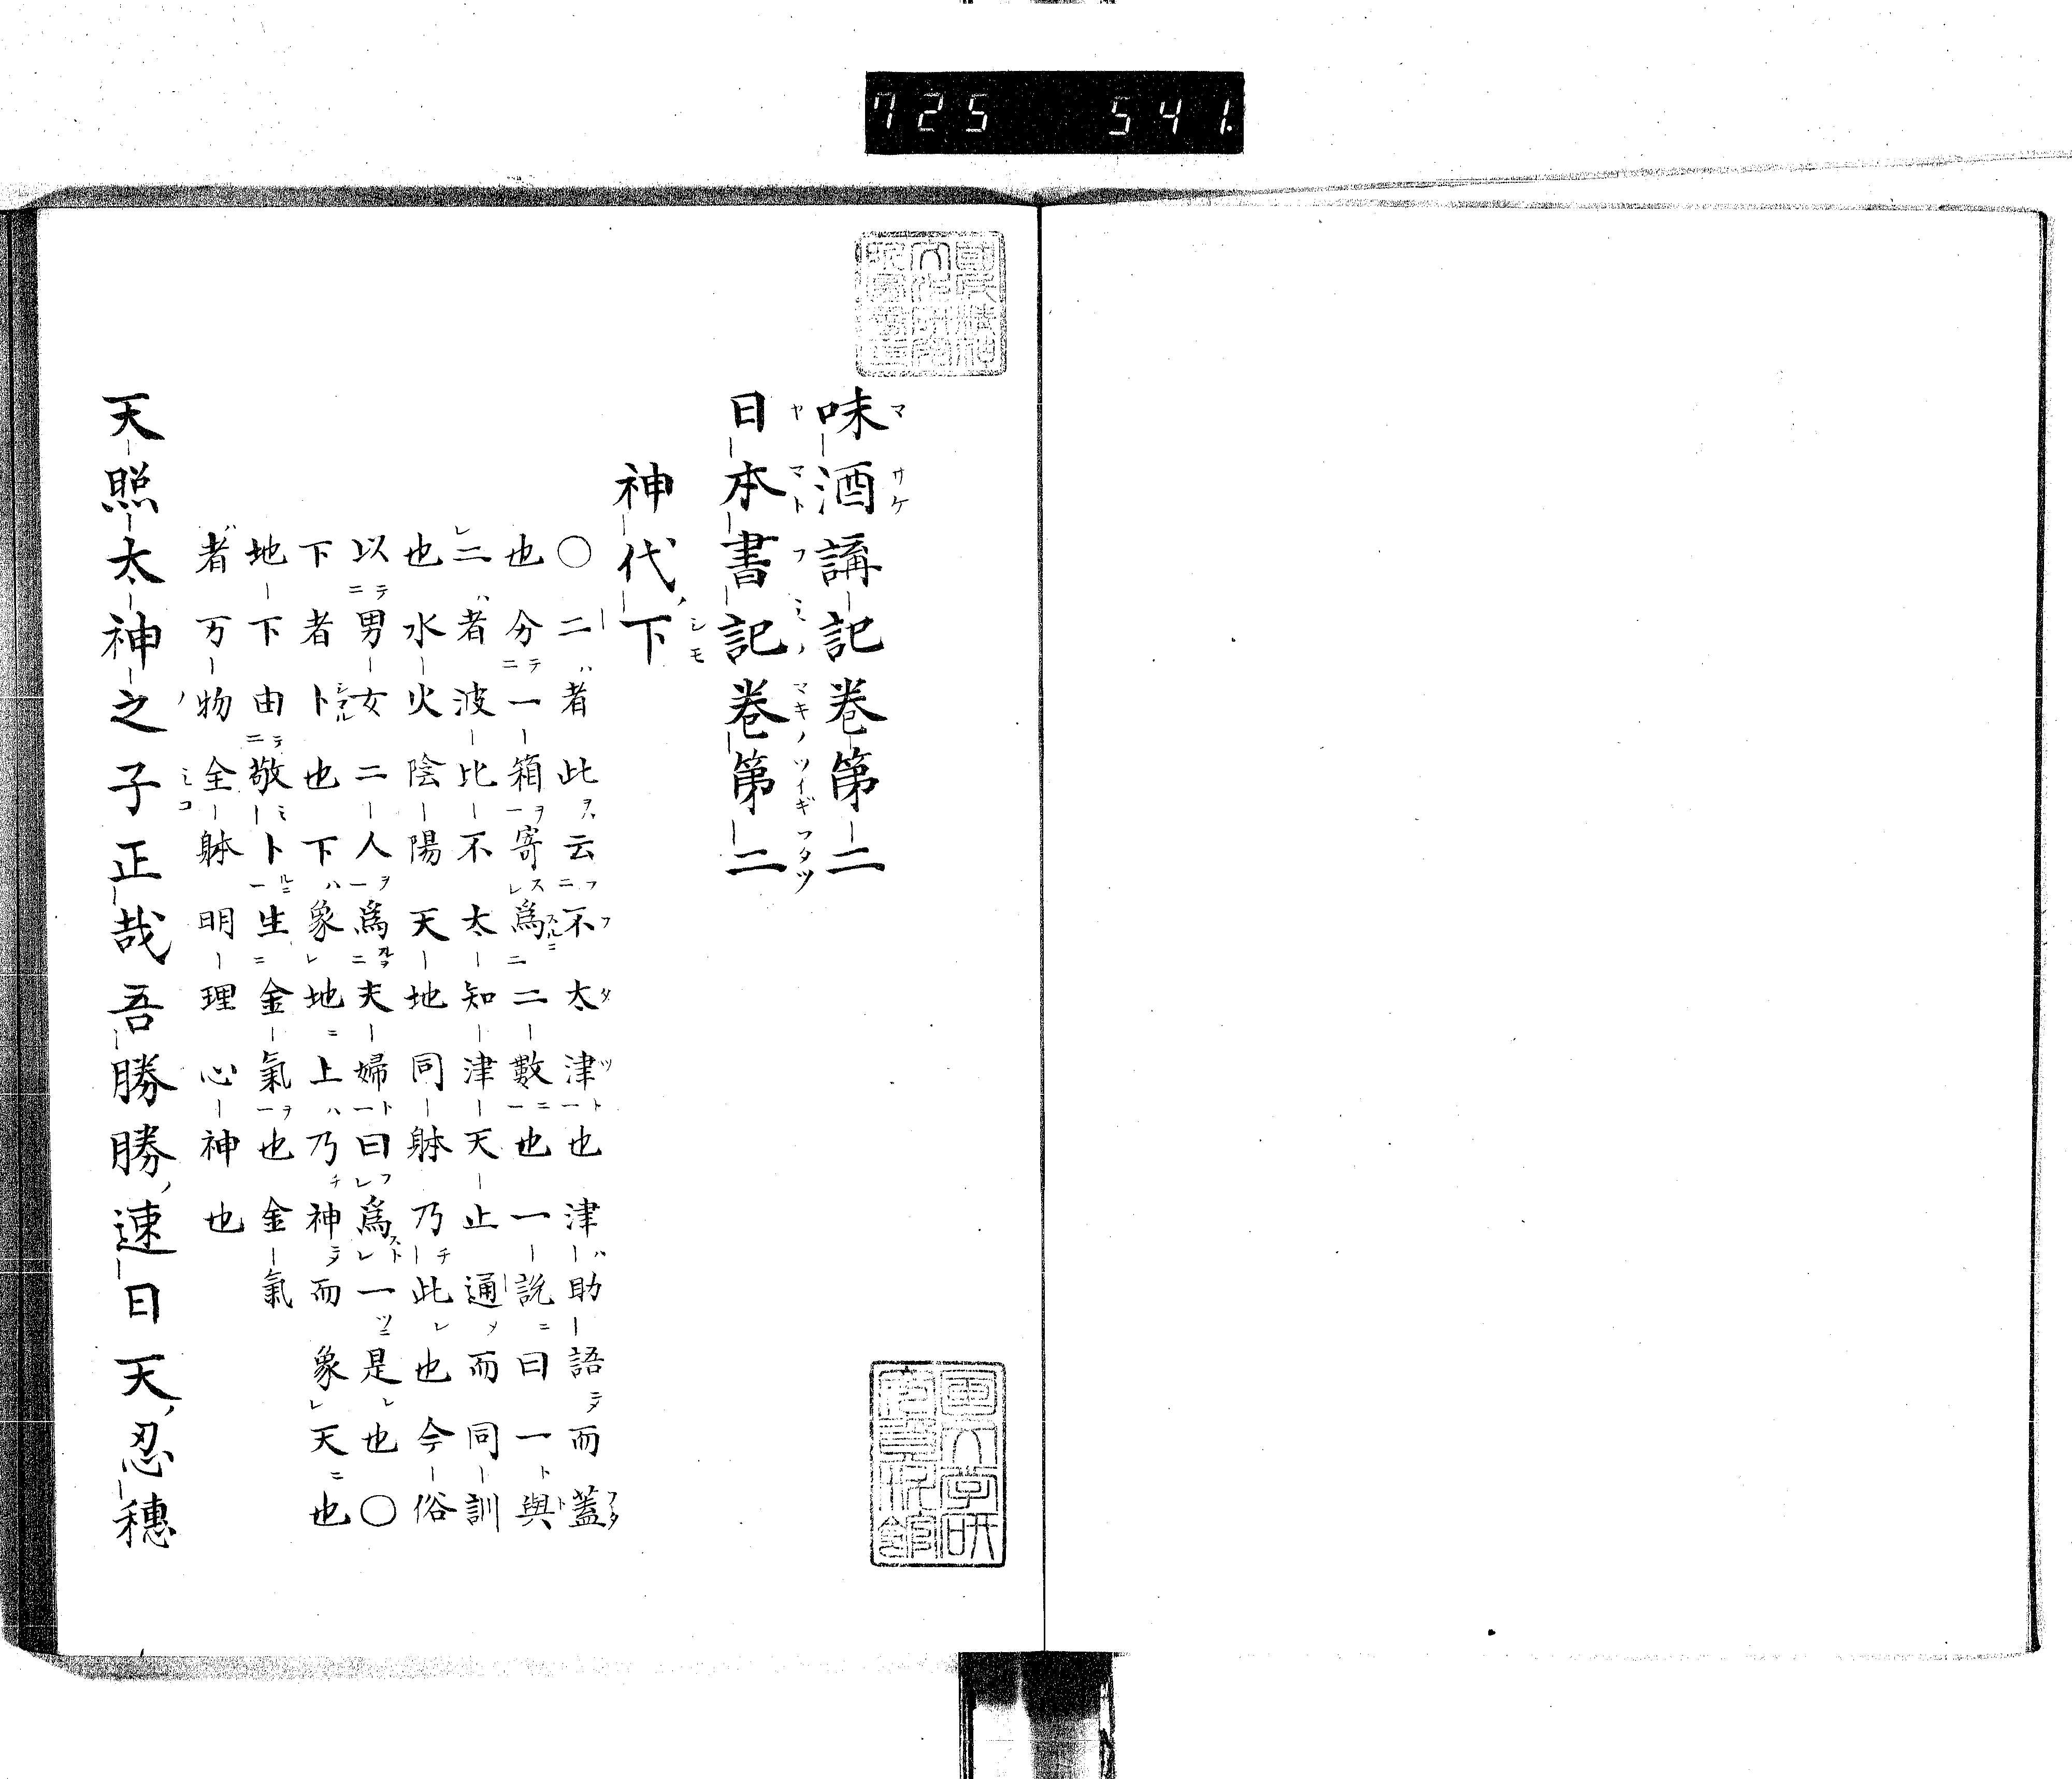 725 541.
味酒講記卷第二
日本書記卷第二
神代下
〇二者此云不太津也津助語而蓋
也分一箱寄爲二數也一説曰一與
二者波比不太知津天止通而同訓
也水火陰陽天地同躰乃此也今俗
以男女二人爲夫婦曰爲一是也〇
下者卜也下象地上乃神而象天也
地下由敬卜生金氣也金氣
者万物全躰明理心神也
天照太神之子正哉吾勝勝速日天忍穗